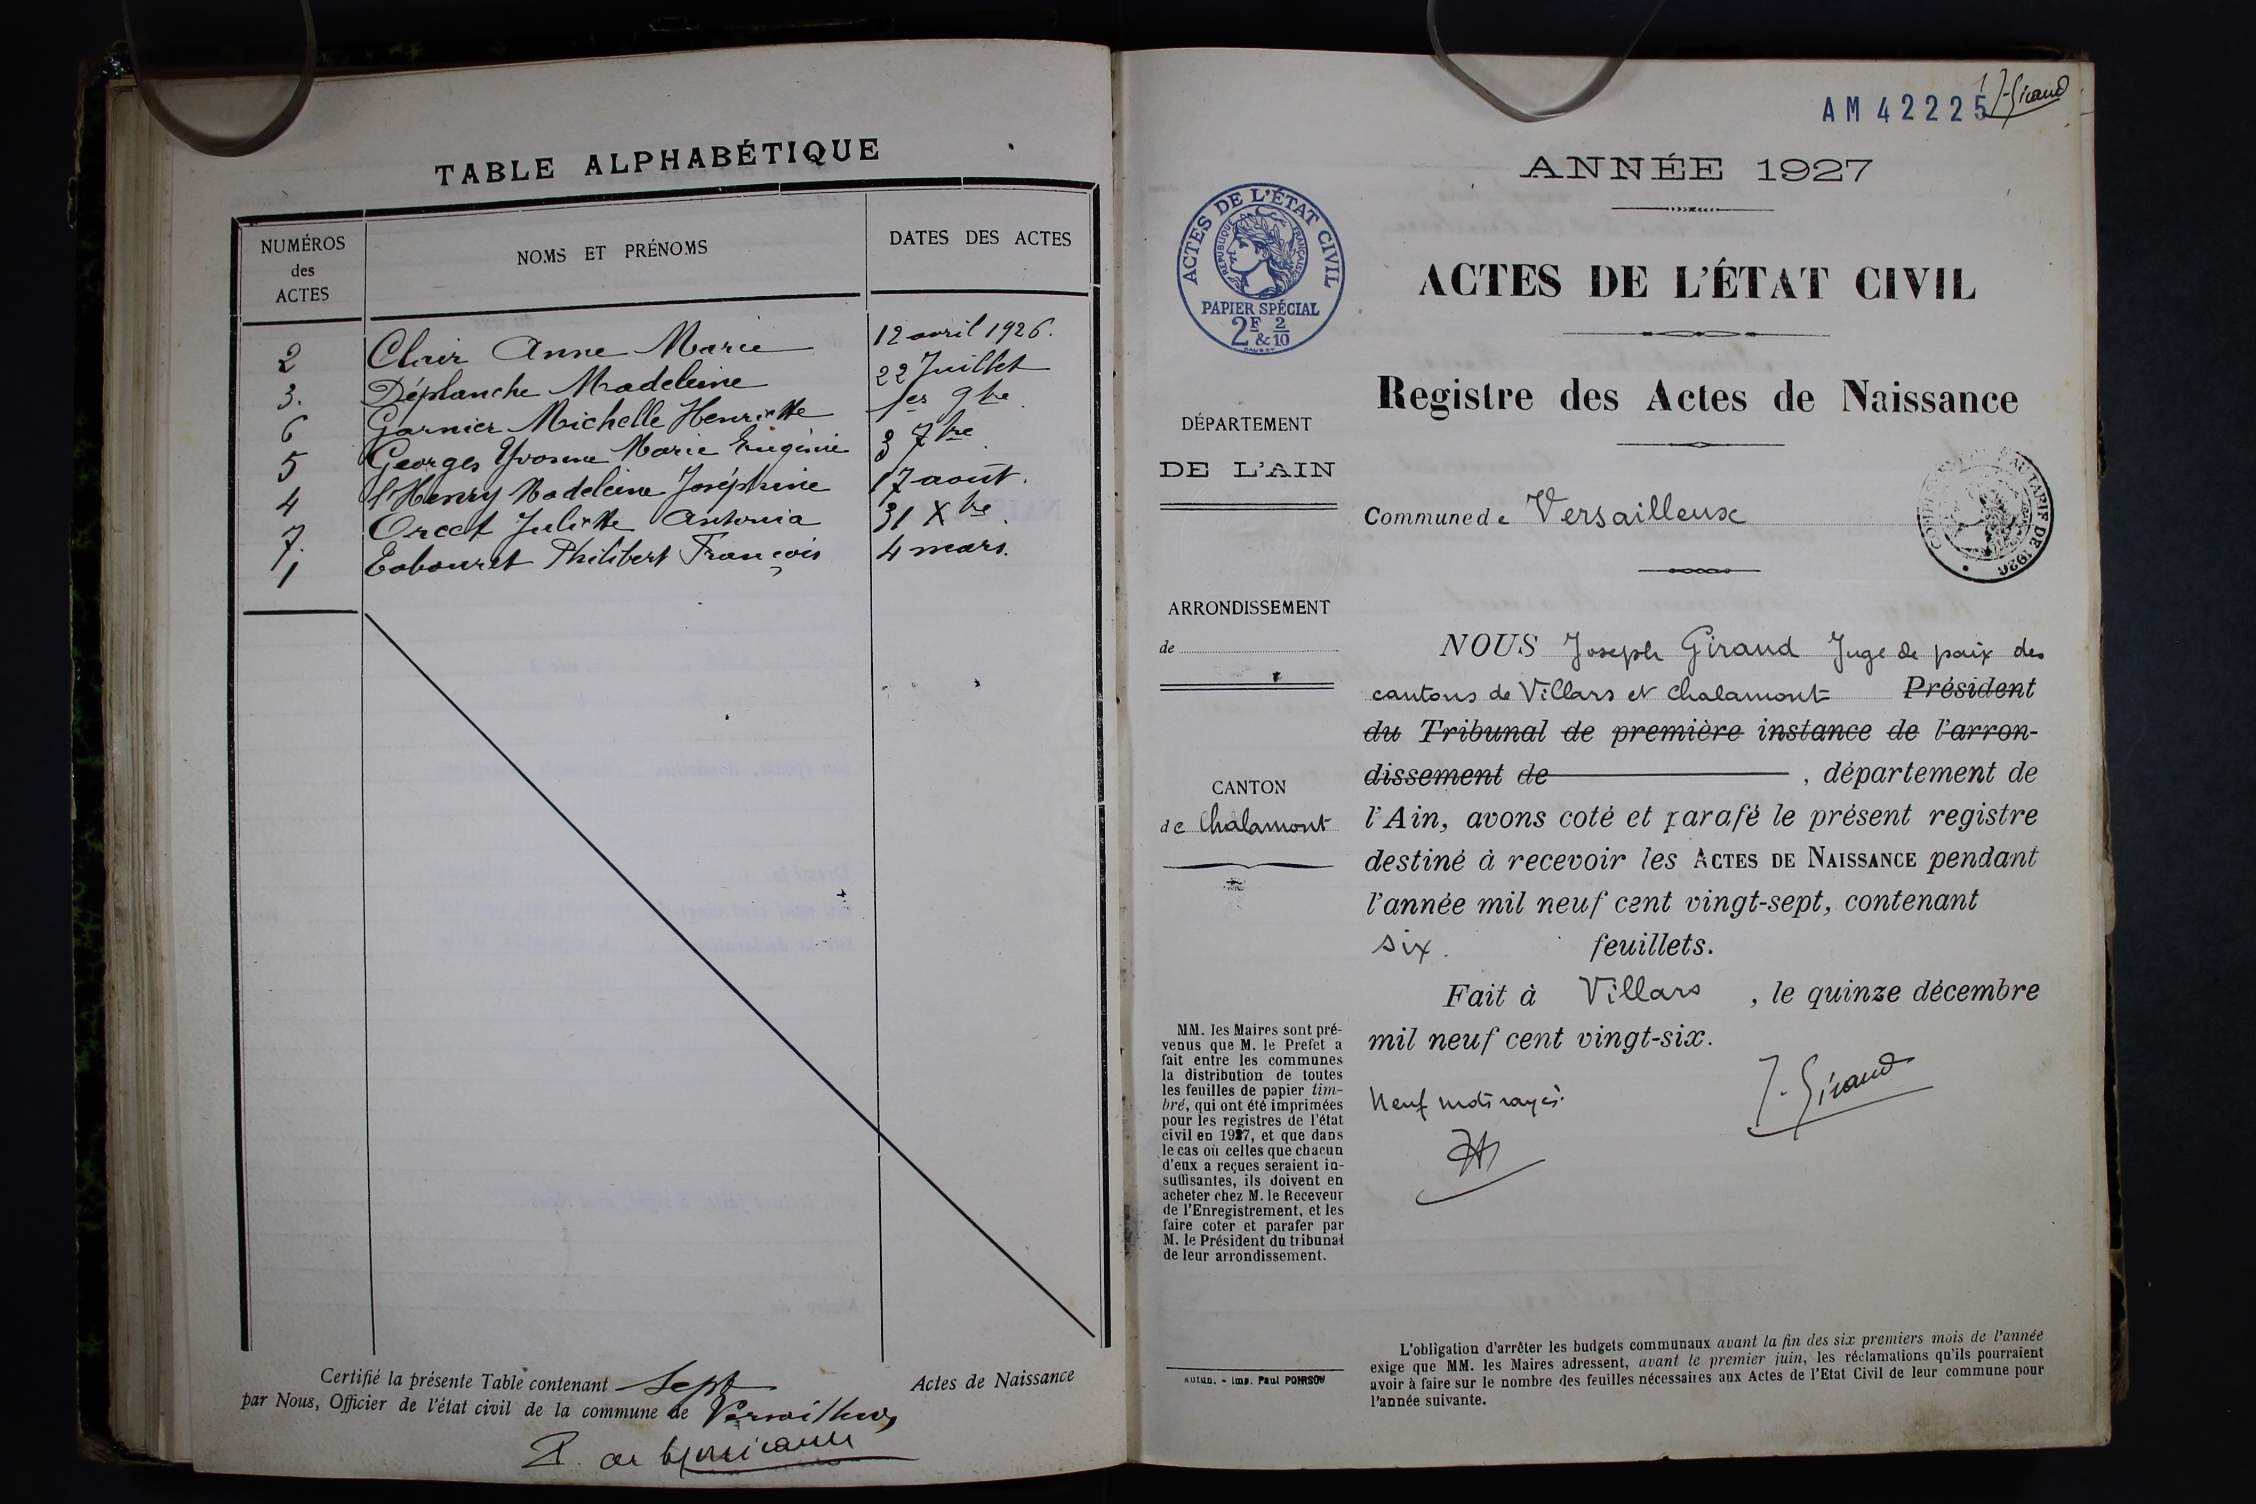 TABLE ALPHABÉTIQUE
NUMÉROS
des
ACTES
NOMS ET PRÉNOMS
DATES DES ACTES
2 Clair Anne Marie 12 avril 1926.
3. Déplanche Madeleine 22 Juillet
6 Garnier Michelle Henriette 1er 9bre
5 Georges Yvonne Marie Eugénie 3 7bre
4 l'Henry Madeleine Joséphine 17 août.
7. Orcet Juliette Antonia 31 Xbre
1 Tabouret Philibert François 4 mars.
Certifié la présente Table contenant Sept Actes de Naissance
par Nous, Officier de l'état civil de la commune de Versailleux
AM 42225
J. Giraud
ANNÉE 1927
ACTES DE L'ÉTAT CIVIL
RÉPUBLIQUE FRANÇAISE
PAPIER SPÉCIAL
2F & 2/10
ACTES DE L'ÉTAT CIVIL
Registre des Actes de Naissance
DÉPARTEMENT
DE L'AIN
Commune de Versailleux
TARIF DE 1926
ARRONDISSEMENT
de
CANTON
de Chalamont
NOUS Joseph Giraud Juge de paix des
cantons de Villars et Chalamont Président
du Tribunal de première instance de l'arron-
dissement de , département de
l'Ain, avons coté et parafé le présent registre
destiné à recevoir les ACTES DE NAISSANCE pendant
l'année mil neuf cent vingt-sept, contenant
six. feuillets.
Fait à Villars , le quinze décembre
mil neuf cent vingt-six.
Neuf mots rayés.
J. Giraud
MM. les Maires sont pré-
venus que M. le Prefet a
fait entre les communes
la distribution de toutes
les feuilles de papier tim-
bré, qui ont été imprimées
pour les registres de l'état
civil en 1927, et que dans
le cas où celles que chacun
d'eux a reçues seraient in-
suffisantes, ils doivent en
acheter chez M. le Receveur
de l'Enregistrement, et les
faire coter et parafer par
M. le Président du tribunal
de leur arrondissement.
Autun. - Imp. Paul POMRSOW
L'obligation d'arrêter les budgets communaux avant la fin des six premiers mois de l'année
exige que MM. les Maires adressent, avant le premier juin, les réclamations qu'ils pourraient
avoir à faire sur le nombre des feuilles nécessaires aux Actes de l'Etat Civil de leur commune pour
l'année suivante.